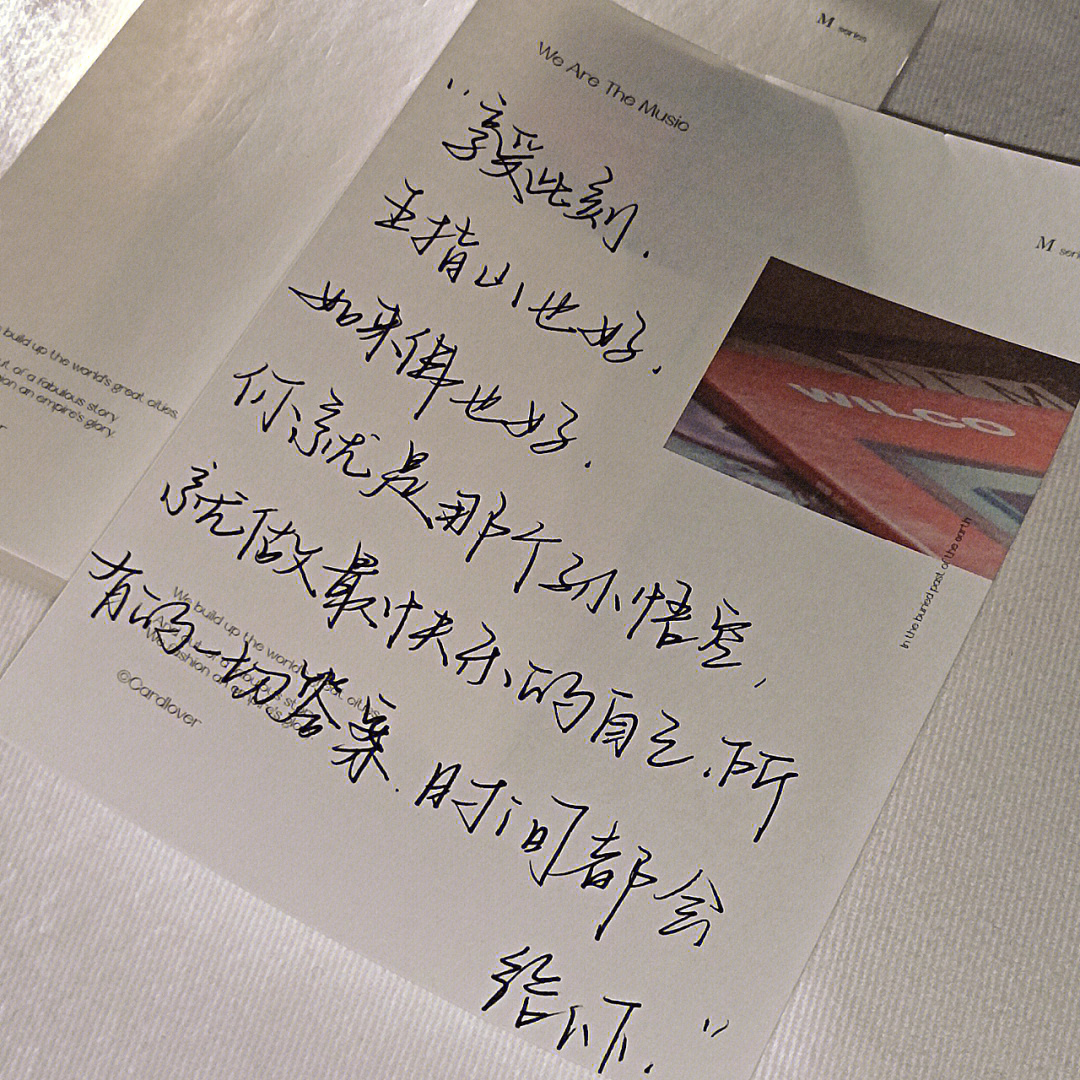 M series
We Are The Music
"享受此刻.
五指山也好.
如来佛也好.
你就是那个孙悟空,
就做最快乐的自己.所
有的一切答案.时间都会
给你."
M seri
WILCO
In the buried past of the earth
We build up the world's great cities,
And out of a fabulous story
We fashion an empire's glory.
©Cardlover
build up the world's great cities.
ut of a fabulous story
hion an empire's glory.